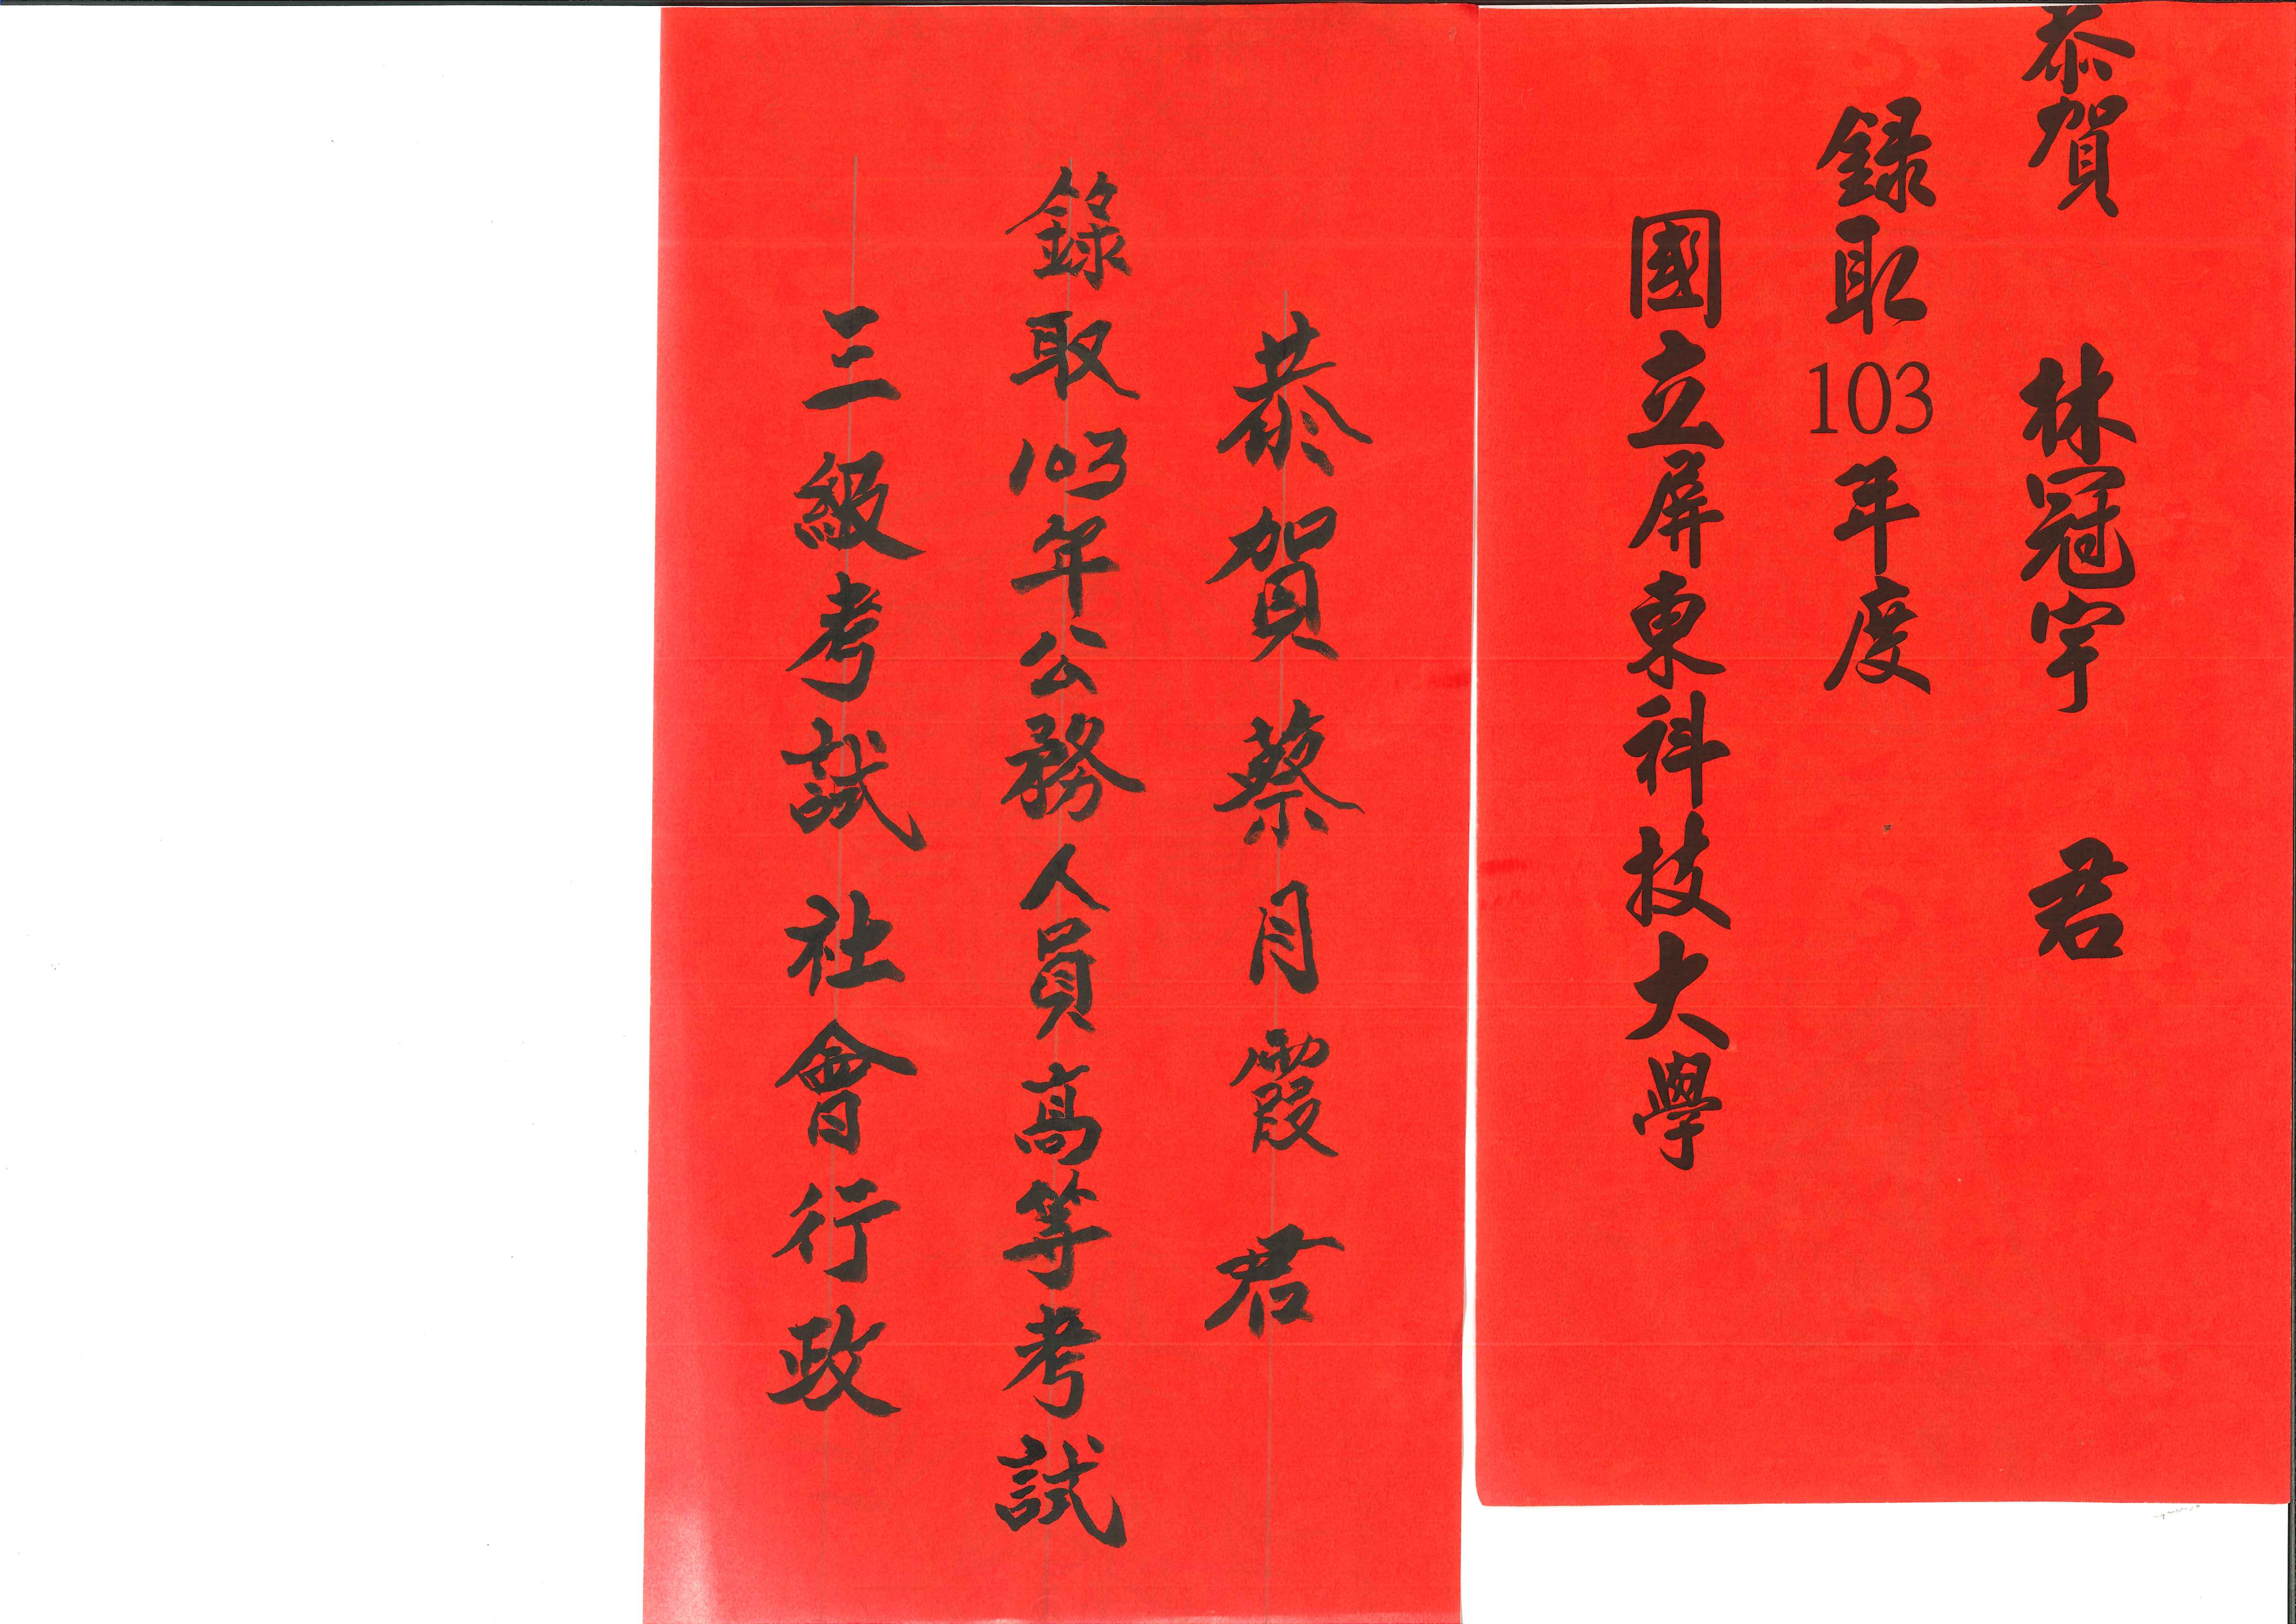 恭賀 林冠宇 君
錄取103年度
國立屏東科技大學
恭賀蔡月霞君
錄取103年公務人員高等考試
三級考試社會行政